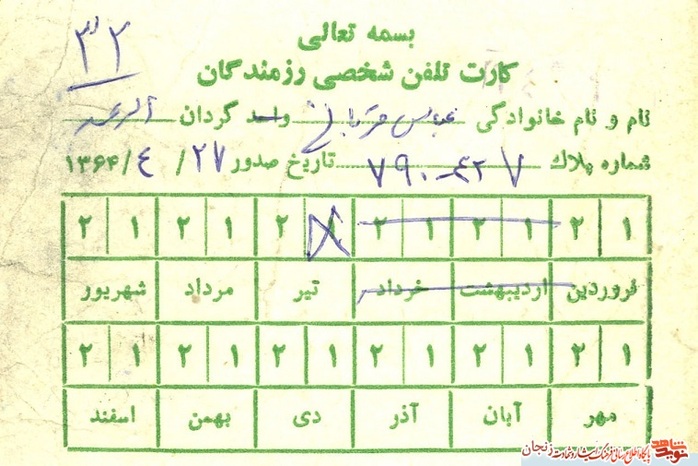 بسمه تعالی
۳۲
کارت تلفن شخصی رزمندگان
نام و نام خانوادگی عباس واحد گردان
شماره پلاك تاریخ صدور ۲۷/ ۴ /۱۳۶۴
۱ ۲ ۱ ۲ ۱ ۲ ۱ ۲ ۱ ۲ ۱ ۲
فروردین اردیبهشت خرداد تیر مرداد شهریور
۱ ۲ ۱ ۲ ۱ ۲ ۱ ۲ ۱ ۲ ۱ ۲
مهر آبان آذر دی بهمن اسفند
نوید شاهد زنجان